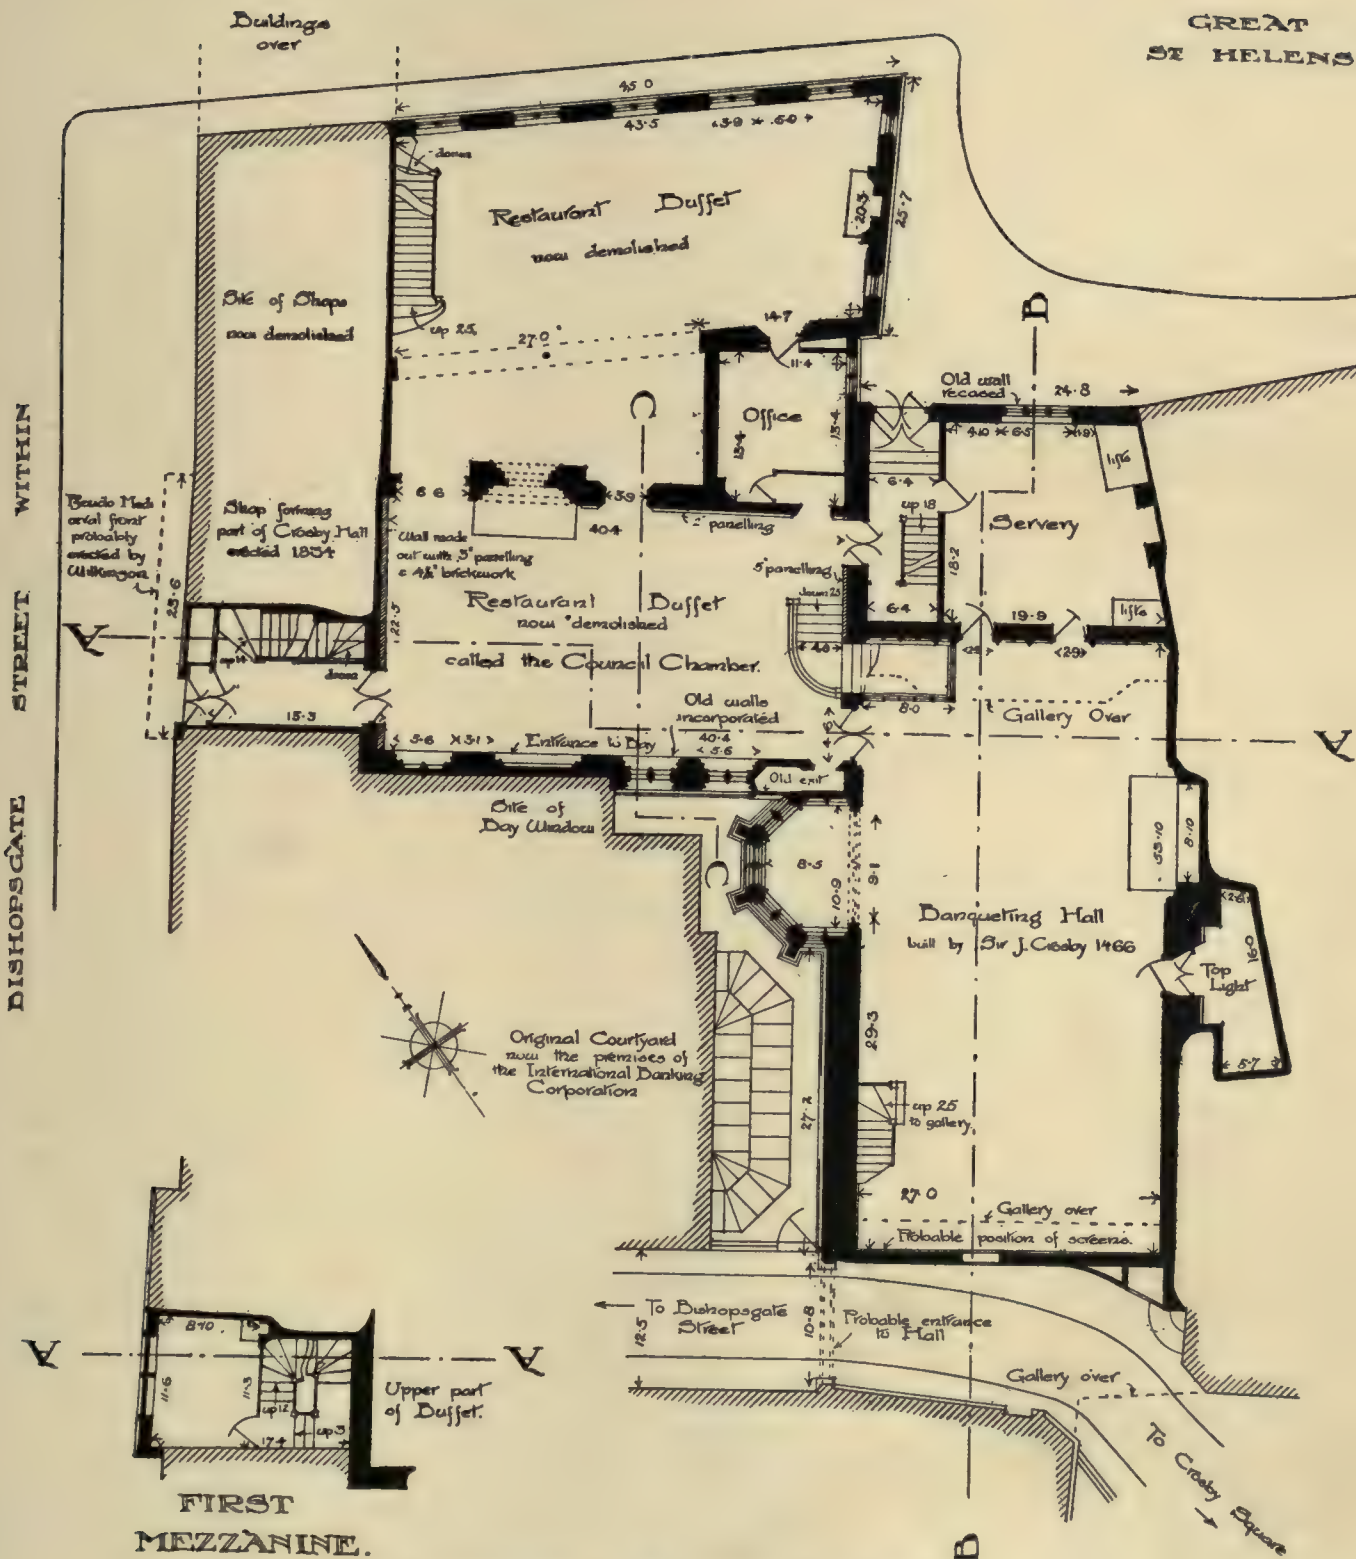 Buildings
over
GREAT
ST HELENS
45·0
43·5
3·9
6·9
down
Restaurant Buffet
now demolished
20·3
25·7
Site of Shops
now demolished
up 25
27·0
14·7
11·4
B
Old wall
recased
24·8
C
Office
13·4
13·4
4·10
6·5
1·9
lifts
BISHOPSGATE STREET WITHIN
Pseudo Med-
iæval front
probably
erected by
Wilkinson
Shop forming
part of Crosby Hall
erected 1834
6·6
3·9
40·4
panelling
Wall made
out with 3" panelling
& 4½" brickwork
6·4
up 18
Servery
18·2
5" panelling
25·6
22·5
Restaurant Buffet
now demolished
called the Council Chamber.
down 25
6·4
19·9
lifts
A
up 14
down
4·0
2·9
2·9
8·0
Gallery Over
15·3
Old walls
incorporated
40·4
5·6
5·1
Entrance to Bay
5·6
A
Old exit
Site of
Bay Window
C
8·5
10·9
9·1
53·10
8·10
Banqueting Hall
built by Sir J. Crosby 1466
2·6
16·0
Top
Light
5·7
Original Courtyard
now the premises of
the International Banking
Corporation
29·3
27·2
up 25
to gallery
27·0
Gallery over
Probable position of screens.
To Bishopsgate
Street
12·5
10·8
Probable entrance
to Hall
Gallery over
To Crosby Square
A
8·10
11·6
11·3
up 12
17·4
up 3
A
Upper part
of Buffet.
FIRST
MEZZANINE.
B